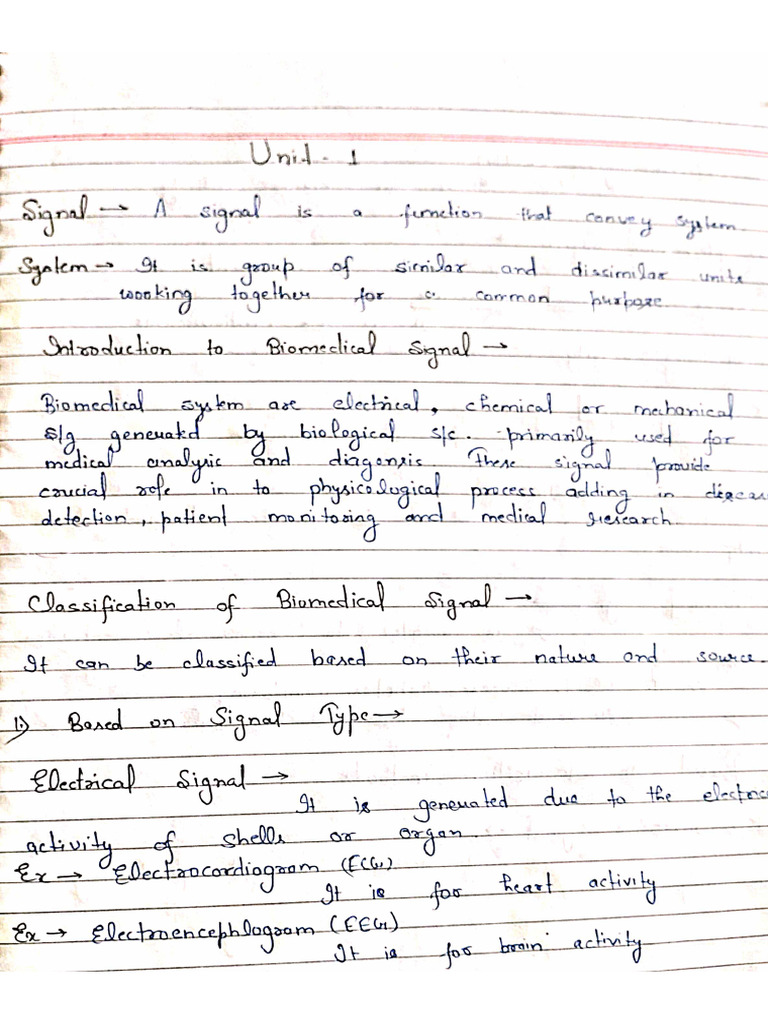 Unit - 1
Signal → A signal is a function that convey system.
System → It is group of similar and dissimilar units
wooking together for a common purpose.
Introduction to Biomedical Signal →
Biomedical system are electrical, chemical or mechanical
s/g generated by biological s/c. primarily used for
medical analysic and diagonsis. These signal provide
crucial role in to physicological process adding in diseas
detection, patient monitosing and medical research.
Classification of Biomedical Signal →
It can be classified based on their nature and source.
1.) Based on Signal Type →
Electrical Signal →
It is generated due to the electric
activity of shells or organ.
Ex → Electrocardiogram (ECG)
It is for heart activity
Ex → Electroencephlogram (EEG)
It is for brain activity